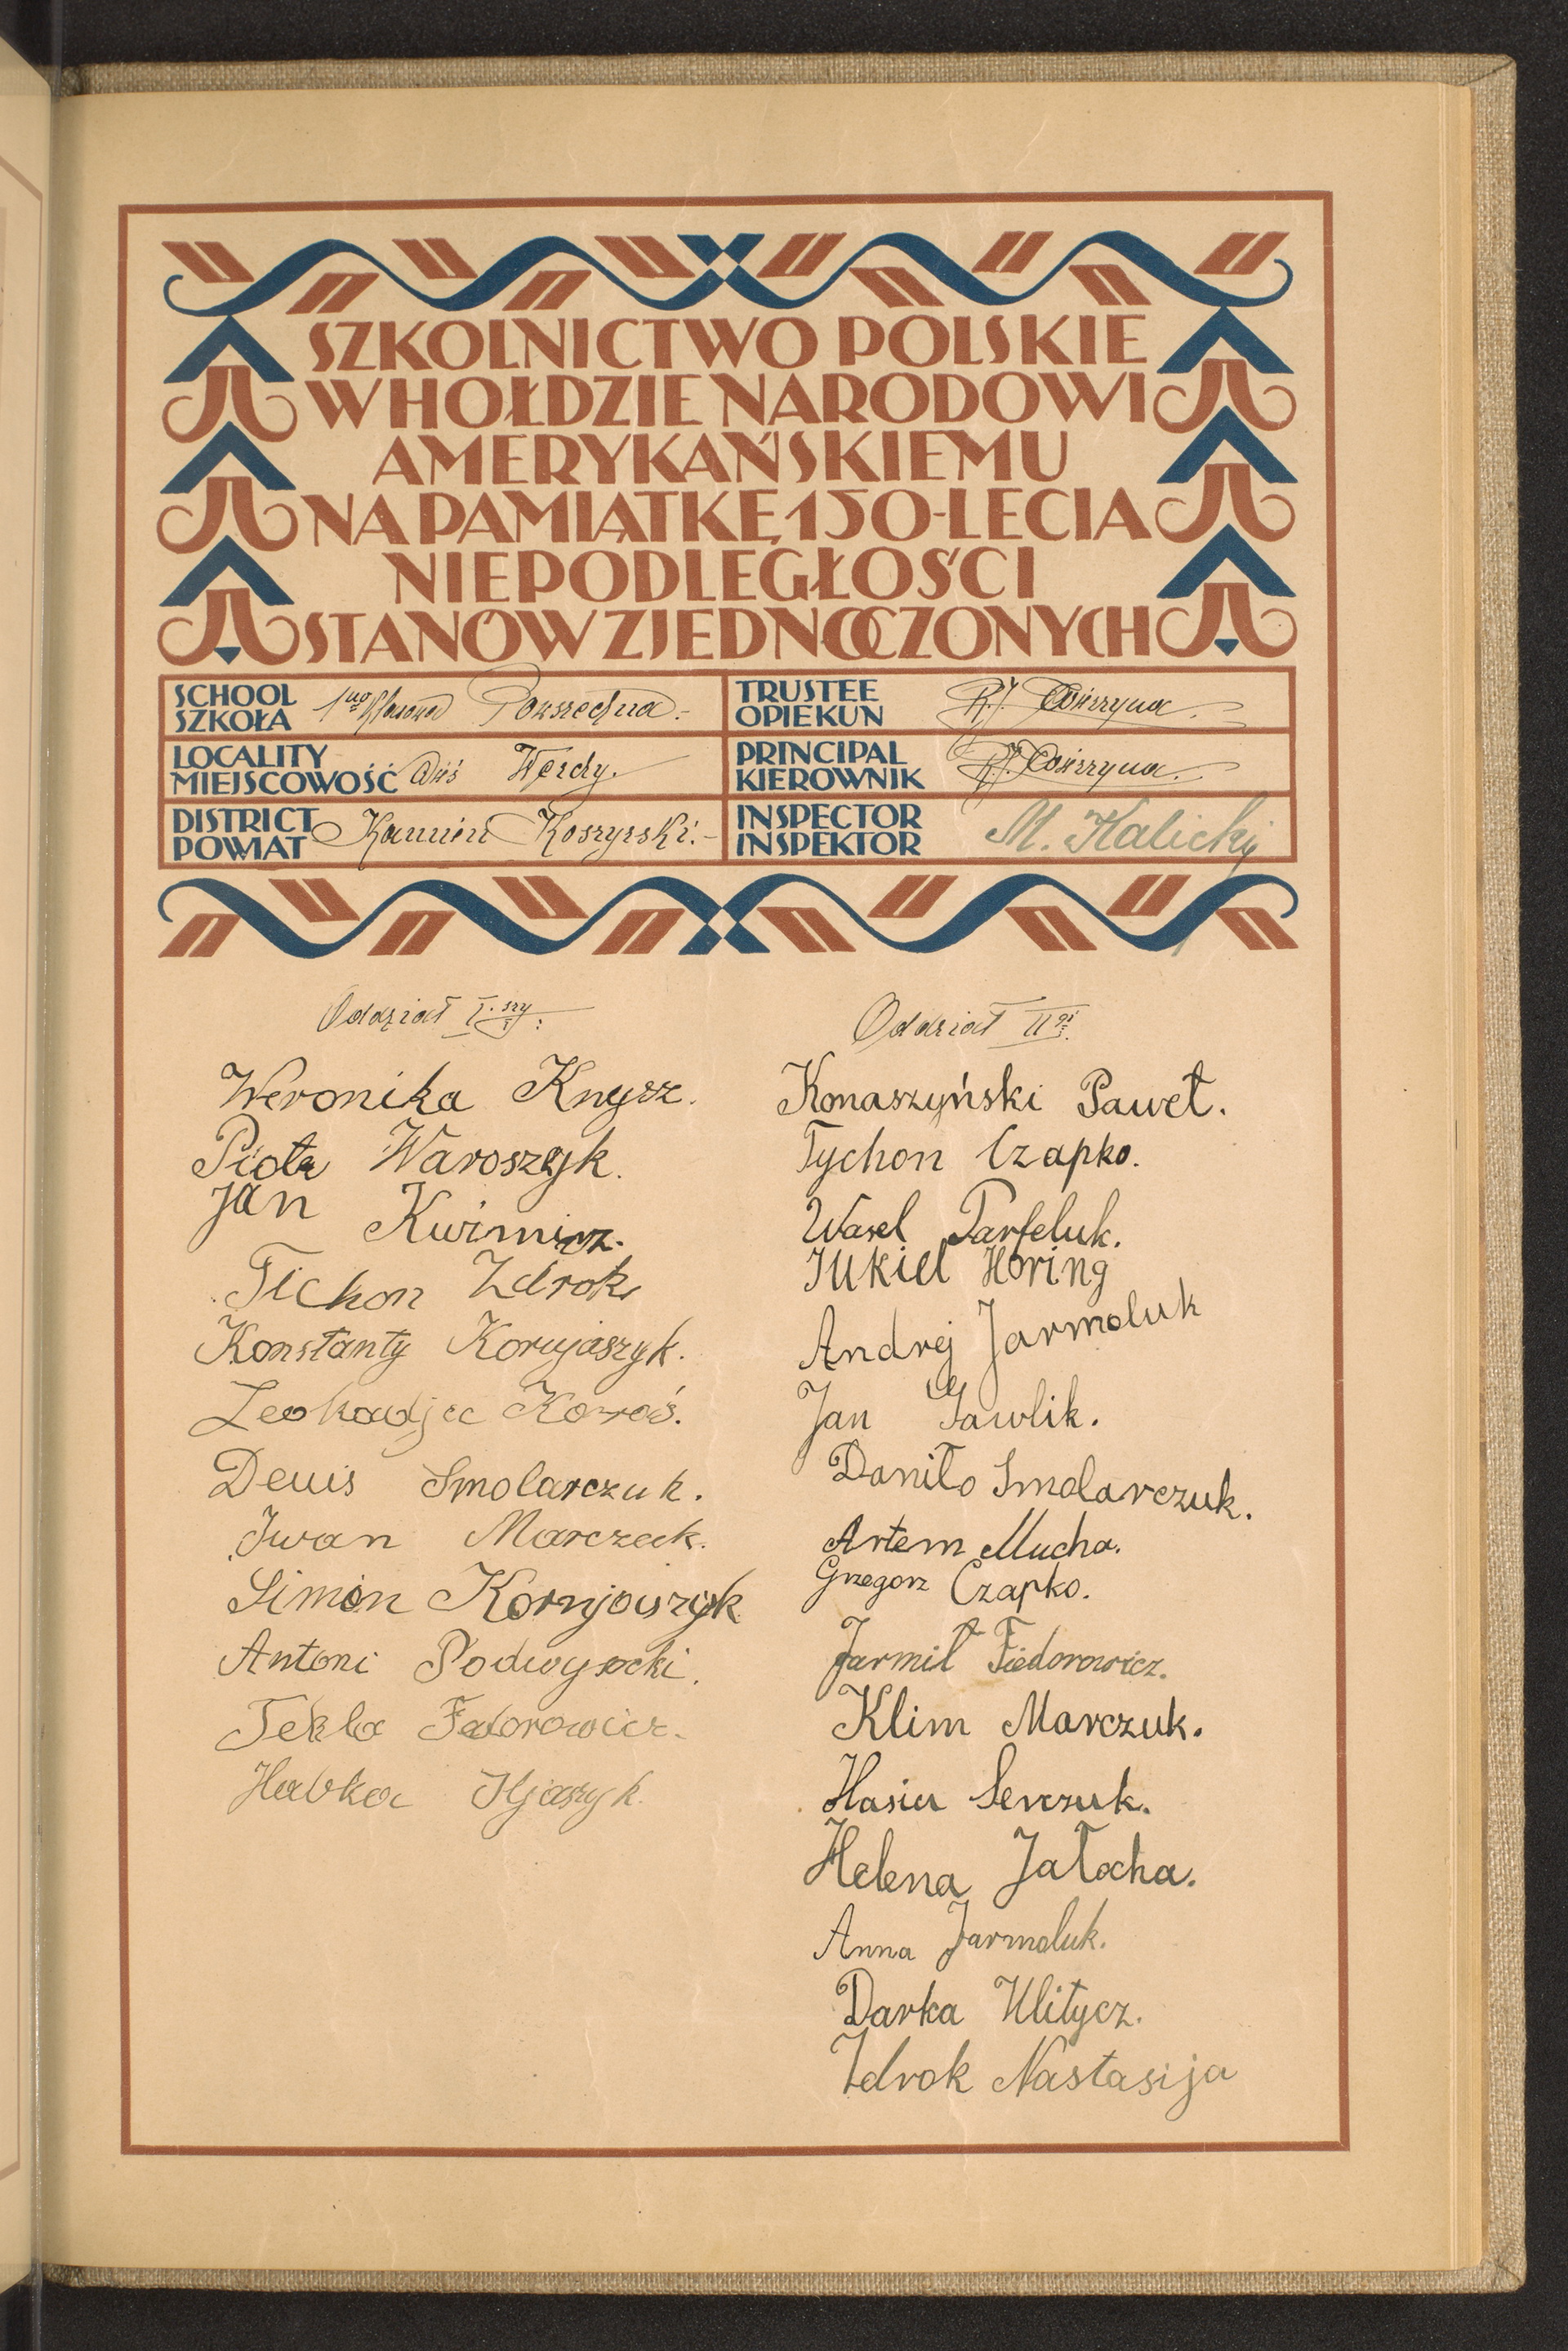 SZKOLNICTWO POLSKIE
W HOŁDZIE NARODOWI
AMERYKAŃSKIEMU
NA PAMIĄTKĘ 150-LECIA
NIEPODLEGŁOŚCI
STANÓW ZJEDNOCZONYCH
SCHOOL
SZKOŁA
1no klasowa Powszechna.-
LOCALITY
MIEJSCOWOŚĆ
Wieś
DISTRICT
POWIAT
Kamień Koszyrski.-
TRUSTEE
OPIEKUN
PRINCIPAL
KIEROWNIK
INSPECTOR
INSPEKTOR
M. Halicki
Oddział I.szy
Weronika Knysz.
Piotr Waroszyk.
Jan
Tichon Zdrok
Konstanty Kornjaszyk.
Leokadja
Denis Smolarczuk.
Iwan Marczuk.
Simon Kornjaszyk
Antoni Podwysocki.
Tekla Fedorowicz.
Habka Iljaszyk.
Oddział IIgi
Konaszyński Paweł.
Tychon Czapko.
Wasel Parfeluk.
Jukiel Horing
Andrej Jarmoluk
Jan Gawlik.
Daniło Smolarczuk.
Artem Mucha.
Grzegorz Czapko.
Jarmił Fiedorowicz.
Klim Marczuk.
Hasia Serczuk.
Helena Jałocha.
Anna Jarmoluk.
Darka Ulitycz.
Zdrok Nastasija